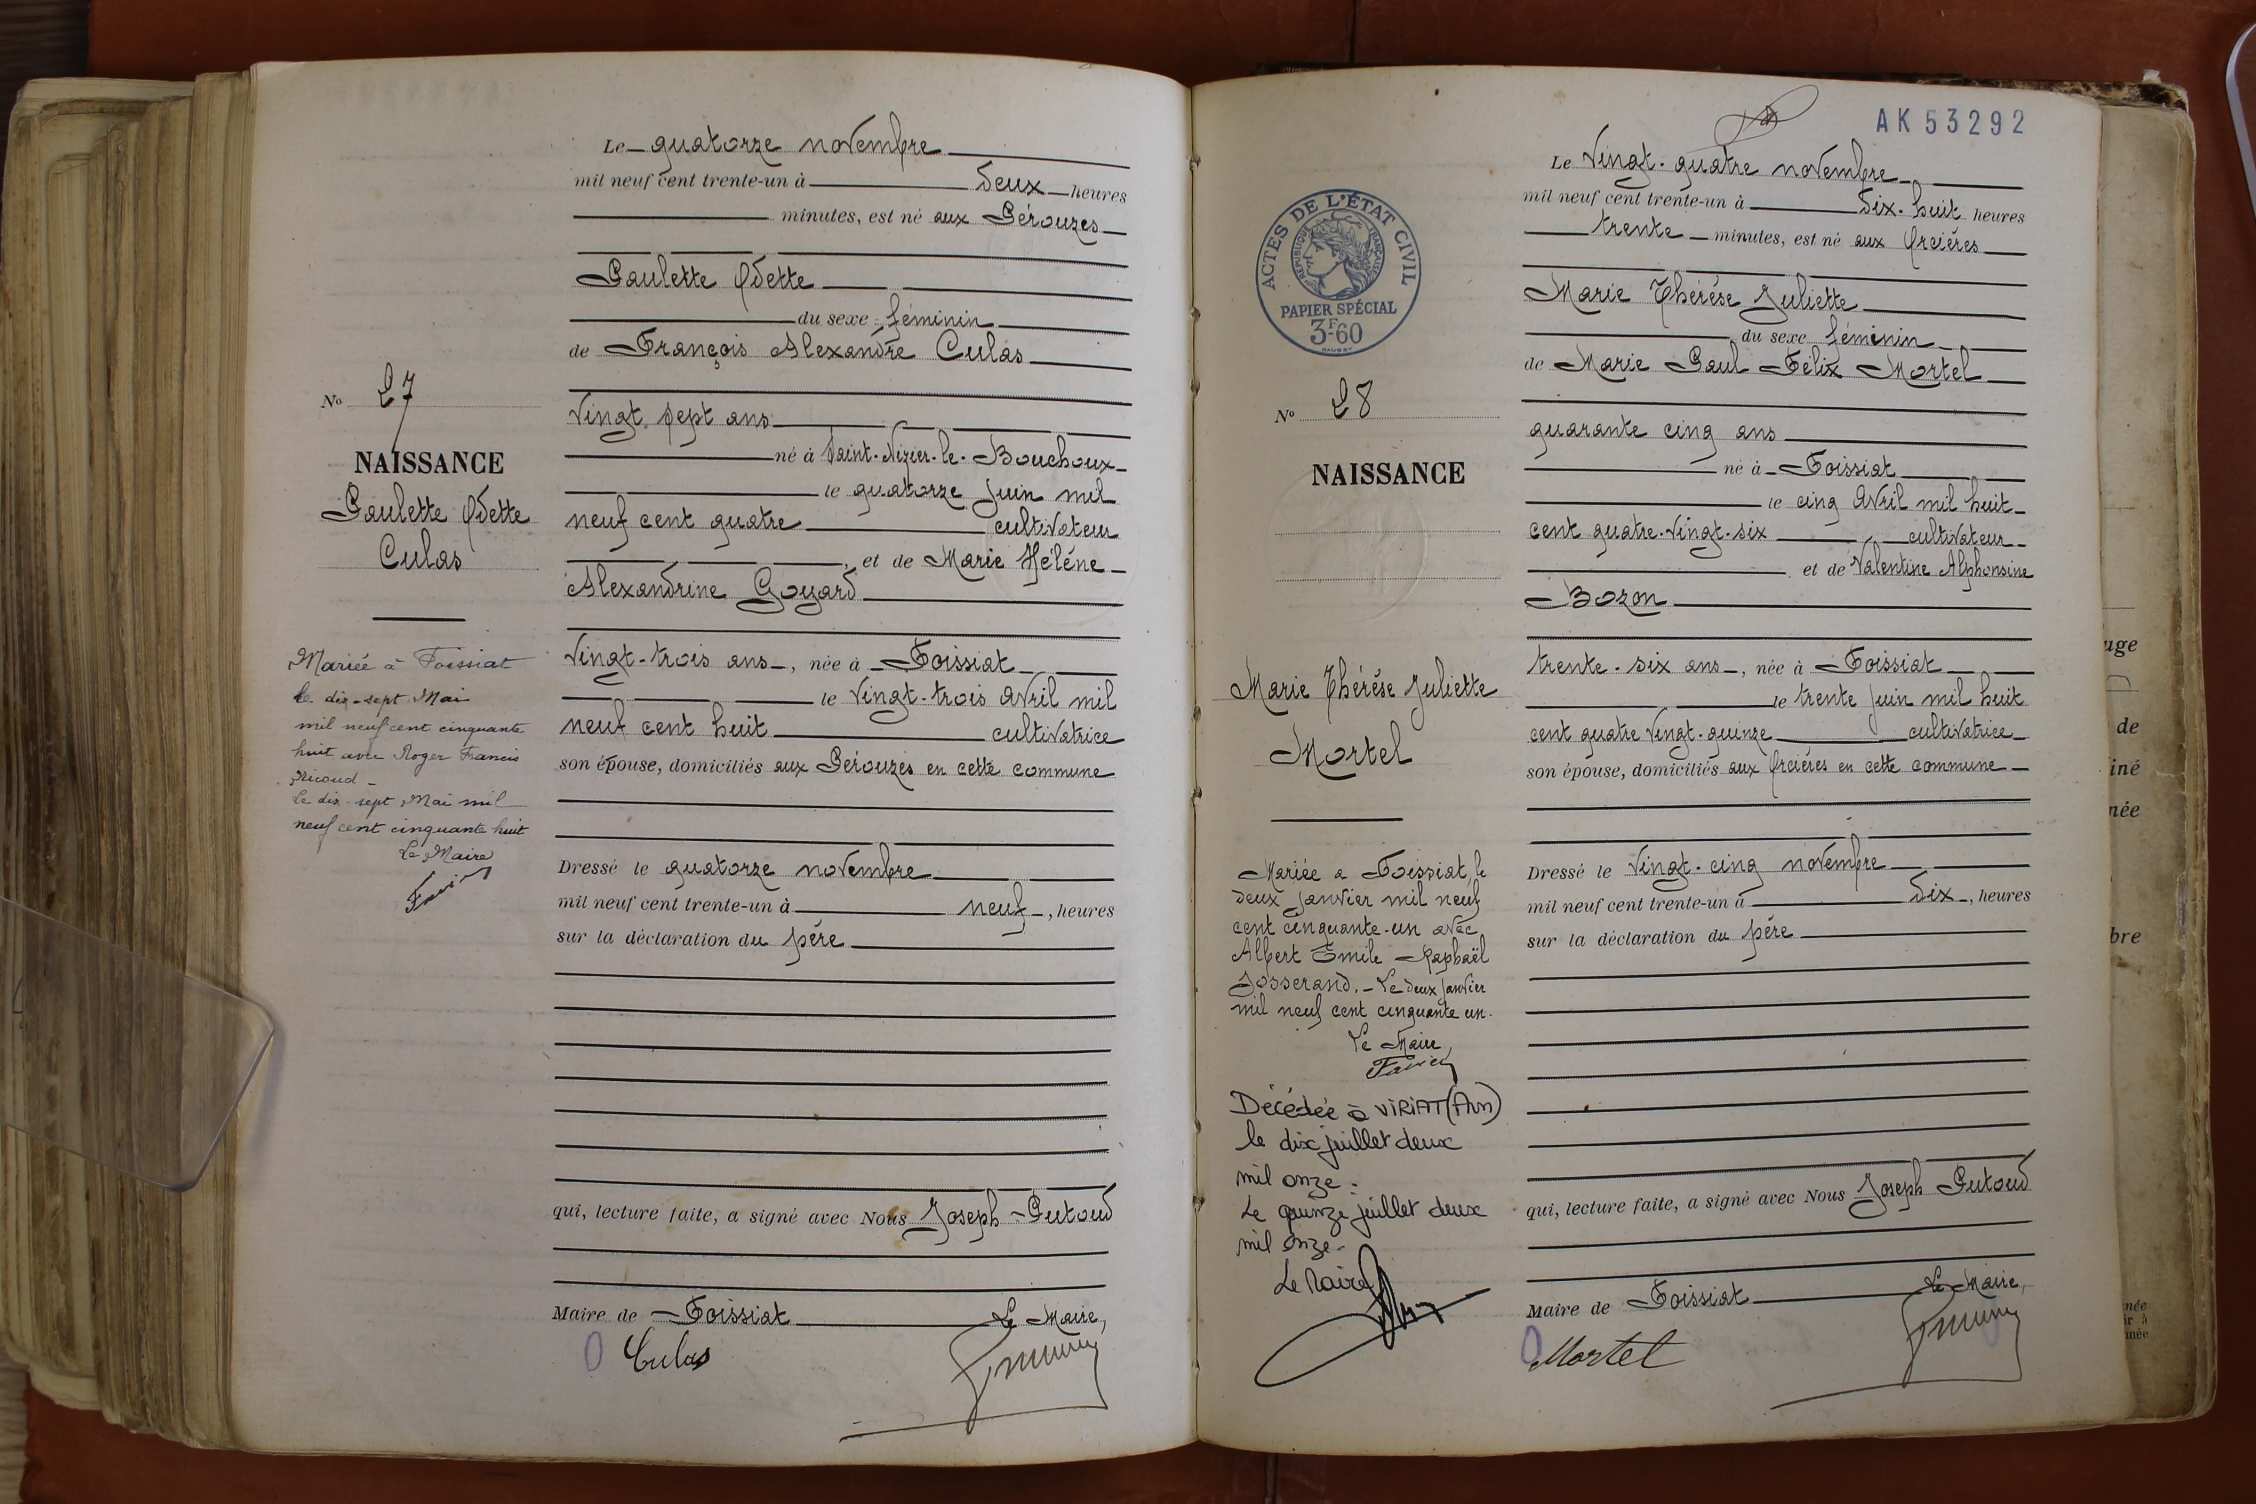 Le quatorze novembre
mil neuf cent trente-un à deux heures
minutes, est né aux Pérouzes
Paulette Odette
du sexe féminin
de François Alexandre Culas
vingt sept ans
né à Saint-Nizier-le-Bouchoux
le quatorze juin mil
neuf cent quatre cultivateur
, et de Marie Hélène
Alexandrine Goyard
vingt-trois ans, née à Foissiat
le vingt-trois avril mil
neuf cent huit cultivatrice
son épouse, domiciliés aux Pérouzes en cette commune
Dressé le quatorze novembre
mil neuf cent trente-un à neuf, heures
sur la déclaration du père
qui, lecture faite, a signé avec Nous Joseph Putoud
Maire de Foissiat Le Maire,
Culas
No 27
NAISSANCE
Paulette Odette
Culas
Mariée à Foissiat
le dix-sept Mai
mil neuf cent cinquante
huit avec Roger Francis
Ricoud
Le dix-sept Mai mil
neuf cent cinquante huit
Le Maire
AK 53292
ACTES DE L'ÉTAT CIVIL
RÉPUBLIQUE FRANÇAISE
PAPIER SPÉCIAL
3F60
No 28
NAISSANCE
Marie Thérése Juliette
Mortel
Mariée a Foissiat, le
deux janvier mil neuf
cent cinquante-un avec
Albert Emile Raphaël
Josserand. - Le deux janvier
mil neuf cent cinquante un.
Le Maire,
Décédée à VIRIAT (Ain)
le dix juillet deux
mil onze.
Le quinze juillet deux
mil onze.
Le Maire
Le vingt-quatre novembre
mil neuf cent trente-un à dix-huit heures
trente minutes, est né aux Orciéres
Marie Thérése Juliette
du sexe féminin
de Marie Paul Félix Mortel
quarante cinq ans
né à Foissiat
le cinq avril mil huit
cent quatre-vingt-six cultivateur
et de Valentine Alphonsine
Bozon
trente-six ans, née à Foissiat
le trente juin mil huit
cent quatre vingt-quinze cultivatrice
son épouse, domiciliés aux Orciéres en cette commune
Dressé le vingt-cinq novembre
mil neuf cent trente-un à dix, heures
sur la déclaration du père
qui, lecture faite, a signé avec Nous Joseph Putoud
Maire de Foissiat Le Maire,
Mortel